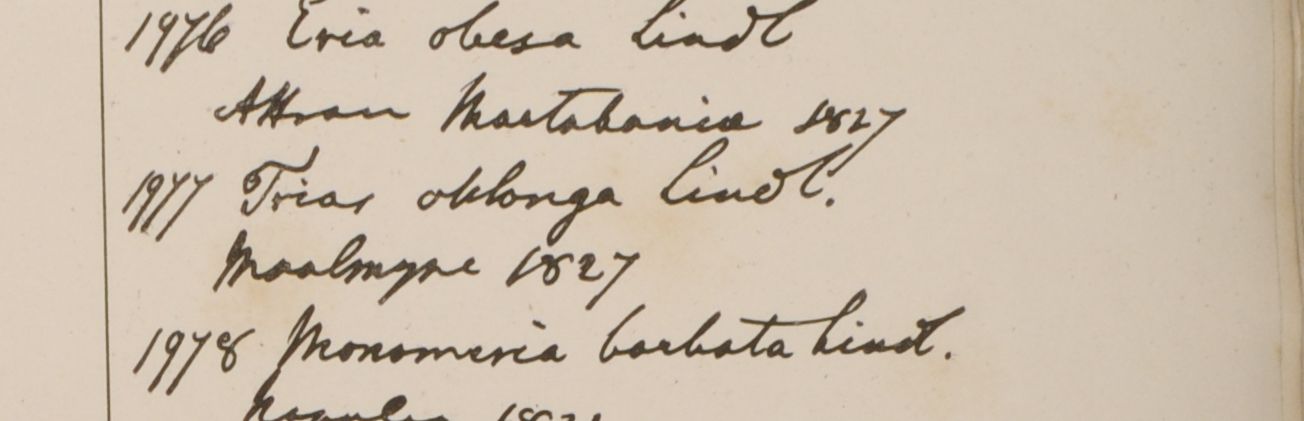 1976 Eria obesa Lindl
Attran Martabaniae 1827
1977 Trias oblonga Lindl.
Moalmyne 1827
1978 Monomeria barbata Lindl.